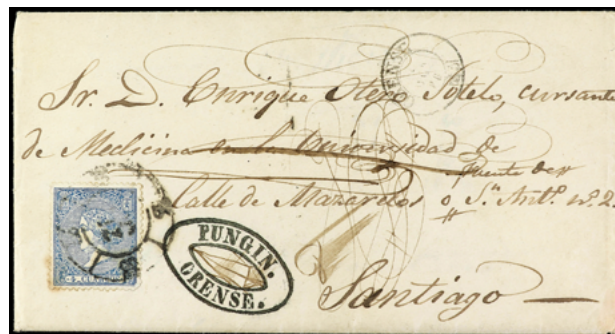 Sr. D. Enrique Otero Sotelo, cursante
de Medicina en la Universidad de
Puente de
Calle de Mazarelos o Sn. Antº. nº. 2
PUNGIN.
ORENSE.
Santiago